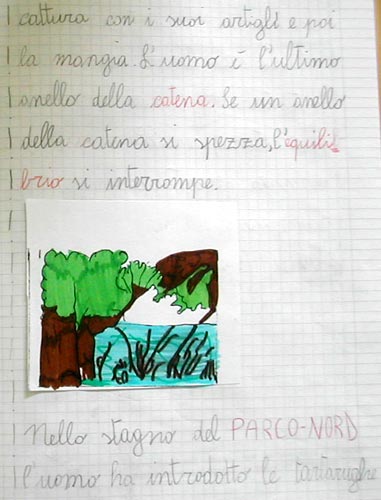 cattura con i suoi artigli e poi
la mangia. L'uomo è l'ultimo
anello della catena. Se un anello
della catena si spezza, l'equili
brio si interrompe.
Nello stagno del PARCO-NORD
l'uomo ha introdotto le tartarughe